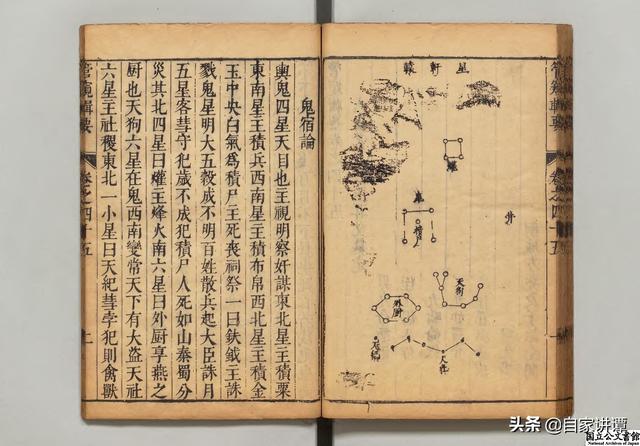 管窺輯要
卷之四十五
星
軒
轅
爟
鬼
積尸
井
天狗
外厨
天紀
天社
鬼宿論
輿鬼四星天目也主視明察奸謀東北星主積粟
東南星主積兵西南星主積布帛西北星主積金
玉中央白氣爲積尸主死喪祠祭一曰鈇鉞主誅
戮鬼星明大五穀成不明百姓散兵起大臣誅月
五星客彗守犯歲不成犯積尸人死如山秦蜀分
災其北四星曰爟主烽火南六星曰外厨享燕之
厨也天狗六星在鬼西南變常天下有大盜天社
六星主社稷東北一小星曰天紀彗孛犯則禽獸
管窺輯要
卷之四十五
头条 @自家讲谭
国立公文書館
National Archives of Japan